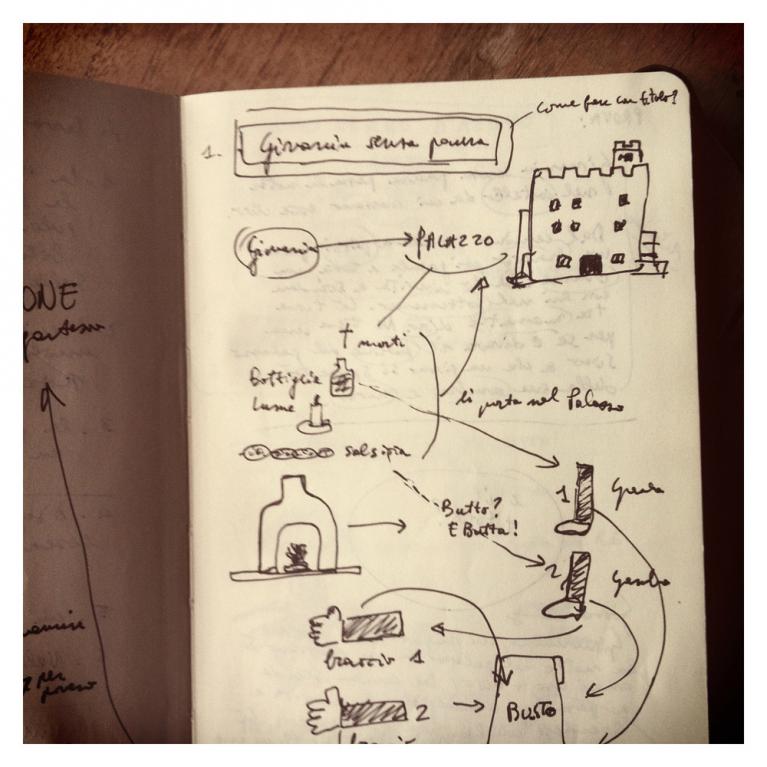 come fare con titolo?
1. Giovannin senza paura
Giovannin
PALAZZO
† morti
Bottiglia
Lume
li porta nel Palazzo
salsiccia
1
Gamba
Butto?
E Butta!
2
Gamba
braccio 1
2
BUSTO
ONE